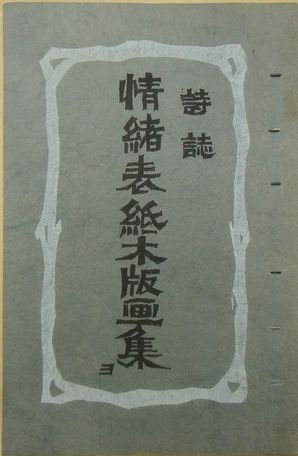 詩誌
情緒表紙木版画集
ヨ